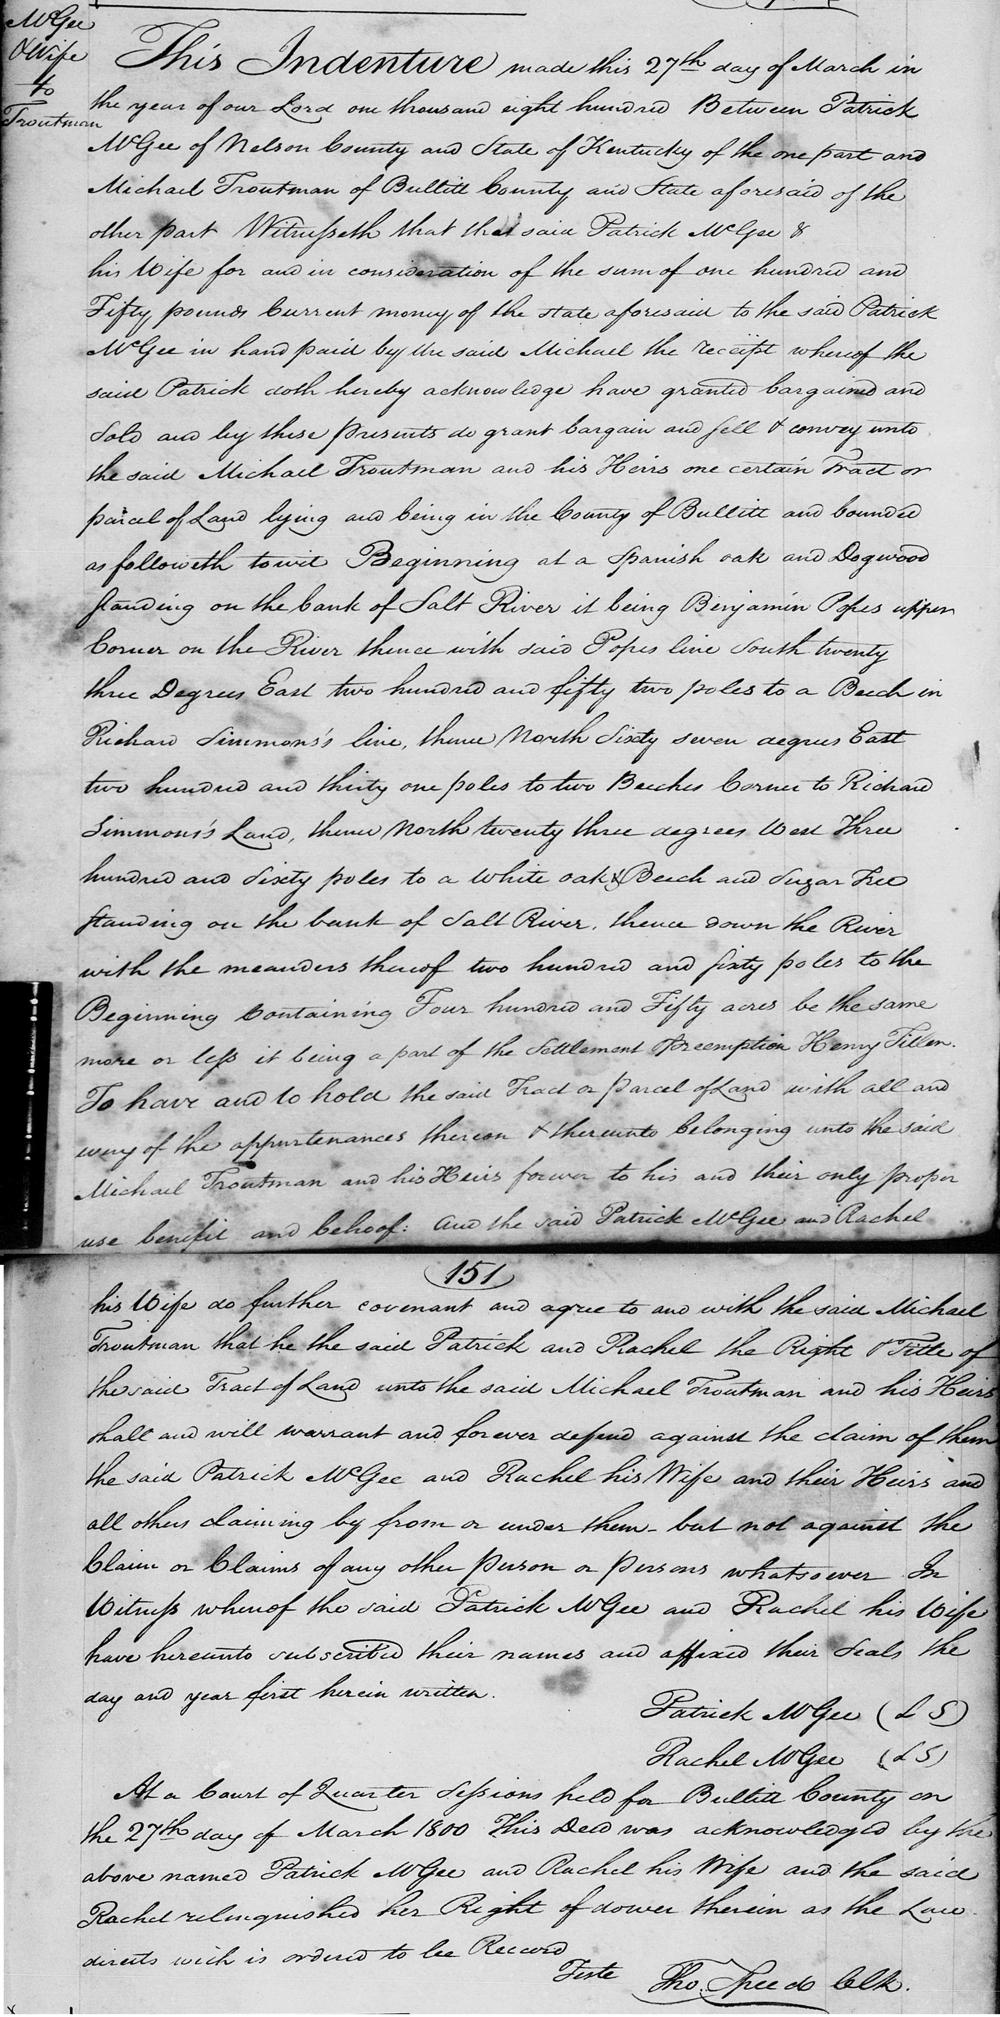 McGee
& Wife
to
Troutman
This Indenture made this 27th day of March in
the year of our Lord one thousand eight hundred Between Patrick
McGee of Nelson County and State of Kentucky of the one part and
Michael Troutman of Bullitt County and State aforesaid of the
other part Witnesseth that that said Patrick McGee &
his Wife for and in consideration of the sum of one hundred and
Fifty pounds Current money of the state aforesaid to the said Patrick
McGee in hand paid by the said Michael the receipt whereof the
said Patrick doth hereby acknowledge have granted bargained and
Sold and by these presents do grant bargain and sell & convey unto
the said Michael Troutman and his Heirs one certain Tract or
parcel of Land lying and being in the County of Bullitt and bounded
as followeth towit Beginning at a Spanish oak and Dogwood
standing on the bank of Salt River it being Benjamin Popes upper
Corner on the River thence with said Popes line South twenty
three Degrees East two hundred and fifty two poles to a Beech in
Richard Simmons's line, thence North Sixty seven degrees East
two hundred and thirty one poles to two Beeches Corner to Richard
Simmons's Land, thence North twenty three degrees West Three
hundred and Sixty poles to a White oak & Beech and Sugar Tree
standing on the bank of Salt River, thence down the River
with the meanders thereof two hundred and sixty poles to the
Beginning Containing Four hundred and Fifty acres be the same
more or less it being a part of the Settlement Preemption Henry Tillen.
To have and to hold the said Tract or parcel of Land with all and
every of the appurtenances thereon & thereunto belonging unto the said
Michael Troutman and his Heirs forever to his and their only proper
use benefit and behoof: And the said Patrick McGee and Rachel
151
his Wife do further covenant and agree to and with the said Michael
Troutman that he the said Patrick and Rachel the Right & Title of
the said Tract of Land unto the said Michael Troutman and his Heirs
shall and will warrant and forever defend against the claim of them
the said Patrick McGee and Rachel his Wife and their Heirs and
all others claiming by from or under them - but not against the
Claim or Claims of any other person or persons whatsoever In
Witness whereof the said Patrick McGee and Rachel his Wife
have hereunto subscribed their names and affixed their Seals the
day and year first herein written.
Patrick McGee (L S)
Rachel McGee (L S)
At a Court of Quarter Sessions held for Bullitt County on
the 27th day of March 1800 This Deed was acknowledged by the
above named Patrick McGee and Rachel his Wife and the said
Rachel relinquished her Right of dower therein as the Law
directs wich is ordered to be Record
Teste Tho. Speed Clk.